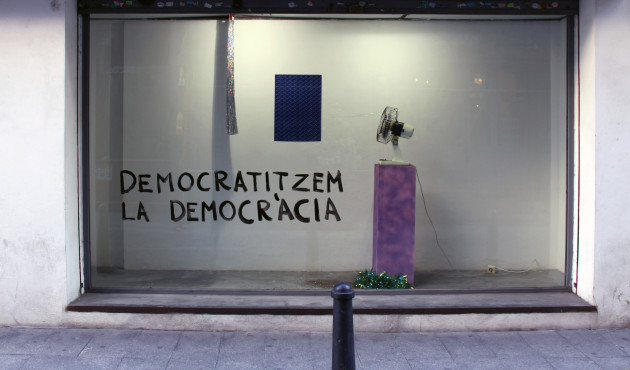 DEMOCRATITZEM
LA DEMOCRÀCIA